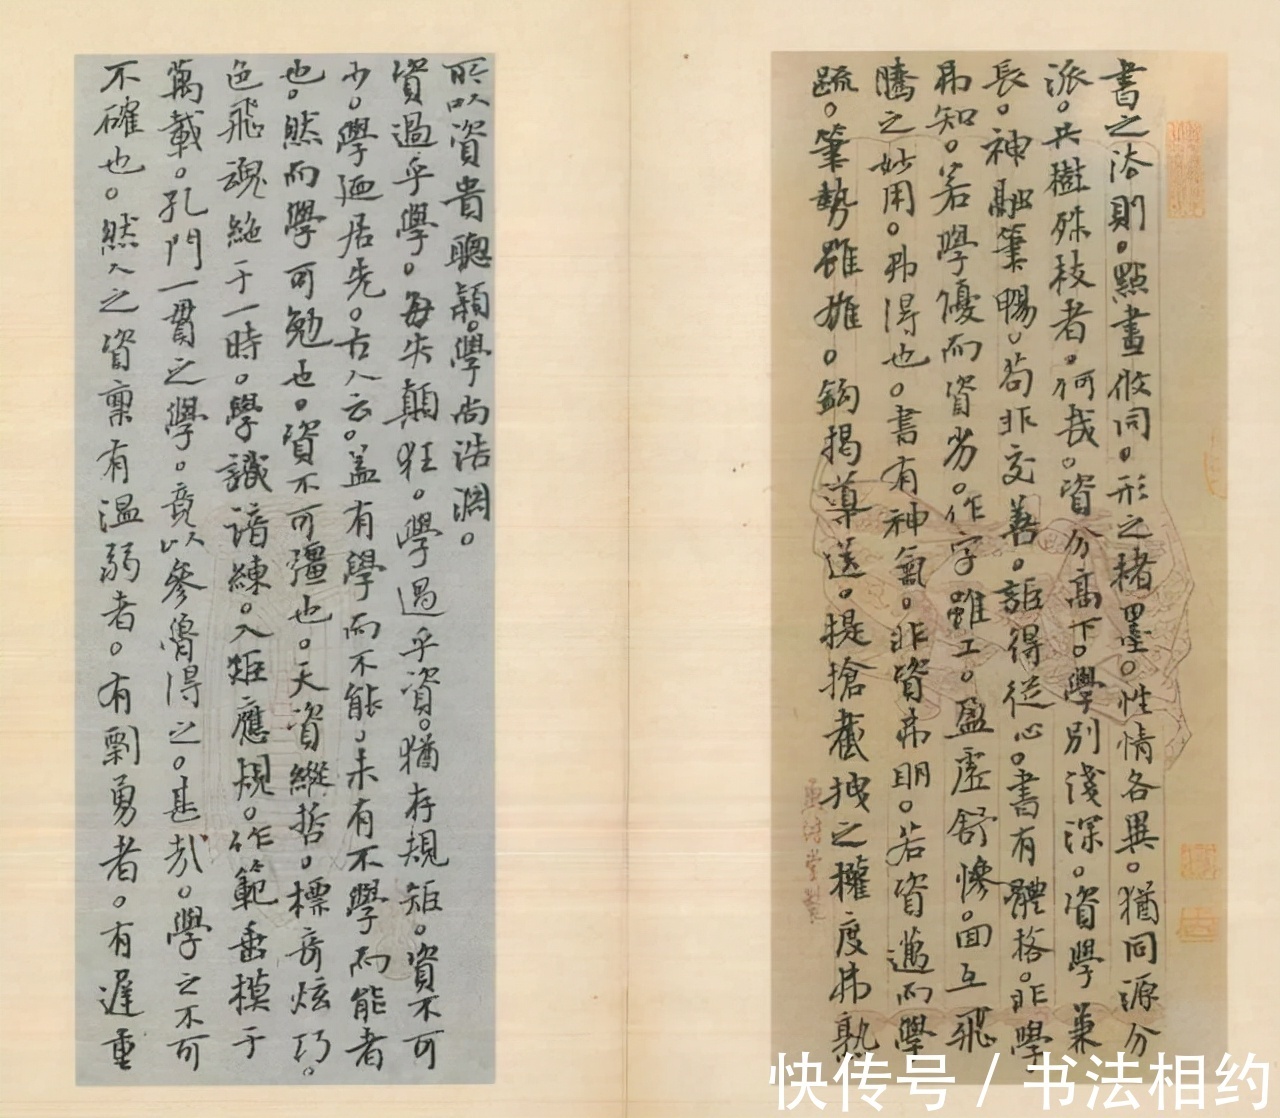 書之法則。點畫攸同。形之楮墨。性情各異。猶同源分
派。共樹殊枝者。何哉。資分高下。學別淺深。資學兼
長。神融筆暢。苟非交善。詎得從心。書有體格。非學
弗知。若學優而資劣。作字雖工。盈虛舒慘。回互飛
騰之妙用。弗得也。書有神氣。非資弗明。若資邁而學
疏。筆勢雖雄。鈎揭導送。提搶截拽之權度弗熟
所以資貴聰穎。學尚浩淵。
資過乎學。每失顛狂。學過乎資。猶存規矩。資不可
少。學廼居先。古人云。盖有學而不能。未有不學而能者
也。然而學可勉也。資不可彊也。天資縱哲。標奇炫巧。
色飛魂絶于一時。學識諳練。入矩應規。作範垂模于
萬載。孔門一貫之學。竟以參魯得之。甚哉。學之不可
不確也。然人之資稟有溫弱者。有剽勇者。有遲重
快传号 / 书法相约